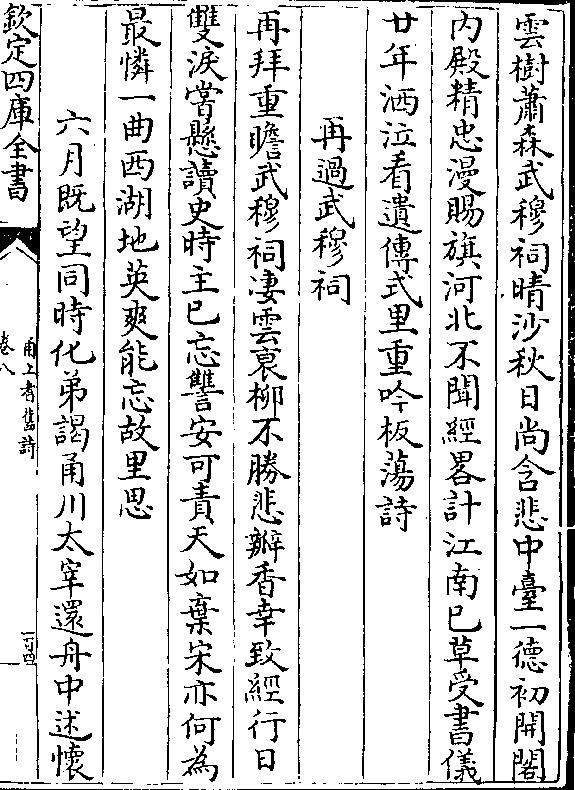 雲樹蕭森武穆祠晴沙秋日尚含悲中臺一德初開閣
内殿精忠漫賜旗河北不聞經畧計江南已草受書儀
廿年洒泣看遺傳式里重吟板蕩詩
再過武穆祠
再拜重瞻武穆祠凄雲哀柳不勝悲瓣香幸致經行日
雙淚嘗懸讀史時主已忘讐安可責天如棄宋亦何為
最憐一曲西湖地英爽能忘故里思
六月既望同時化弟謁甬川太宰還舟中述懷
欽定四庫全書
甬上耆舊詩
卷八
一百四